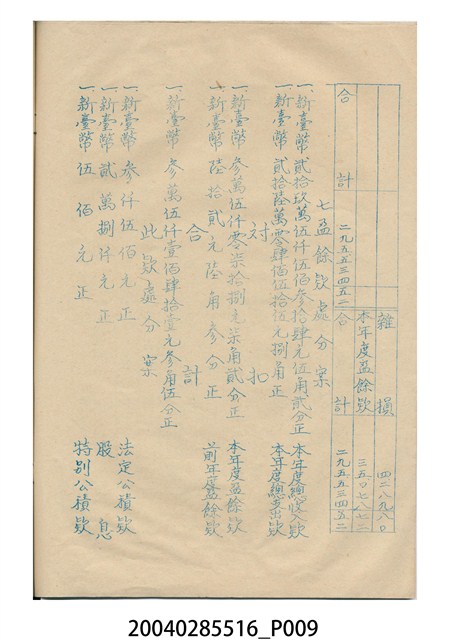 雜損　四二八九八〇
本年度盈餘欵　三五〇七八七二
合計　二九五五三四五二
合計　二九五五三四五二
七 盈餘欵處分案
一、新臺幣貳拾玖萬伍仟伍佰參拾肆元伍角貳分正　本年度總收入欵
一、新臺幣貳拾陸萬零肆佰伍拾伍元捌角正　本年度總支出欵
対扣
一、新臺幣參萬伍仟零柒拾捌元柒角貳分正　本年度盈餘欵
一、新臺幣陸拾貳元陸角參分正　前年度盈餘欵
合計
一、新臺幣參萬伍仟壹佰肆拾壹元參角伍分正
此欵處分案
一、新臺幣參仟伍佰元正　法定公積欵
一、新臺幣貳萬捌仟元正　股息
一、新臺幣伍佰元正　特别公積欵
20040285516_P009